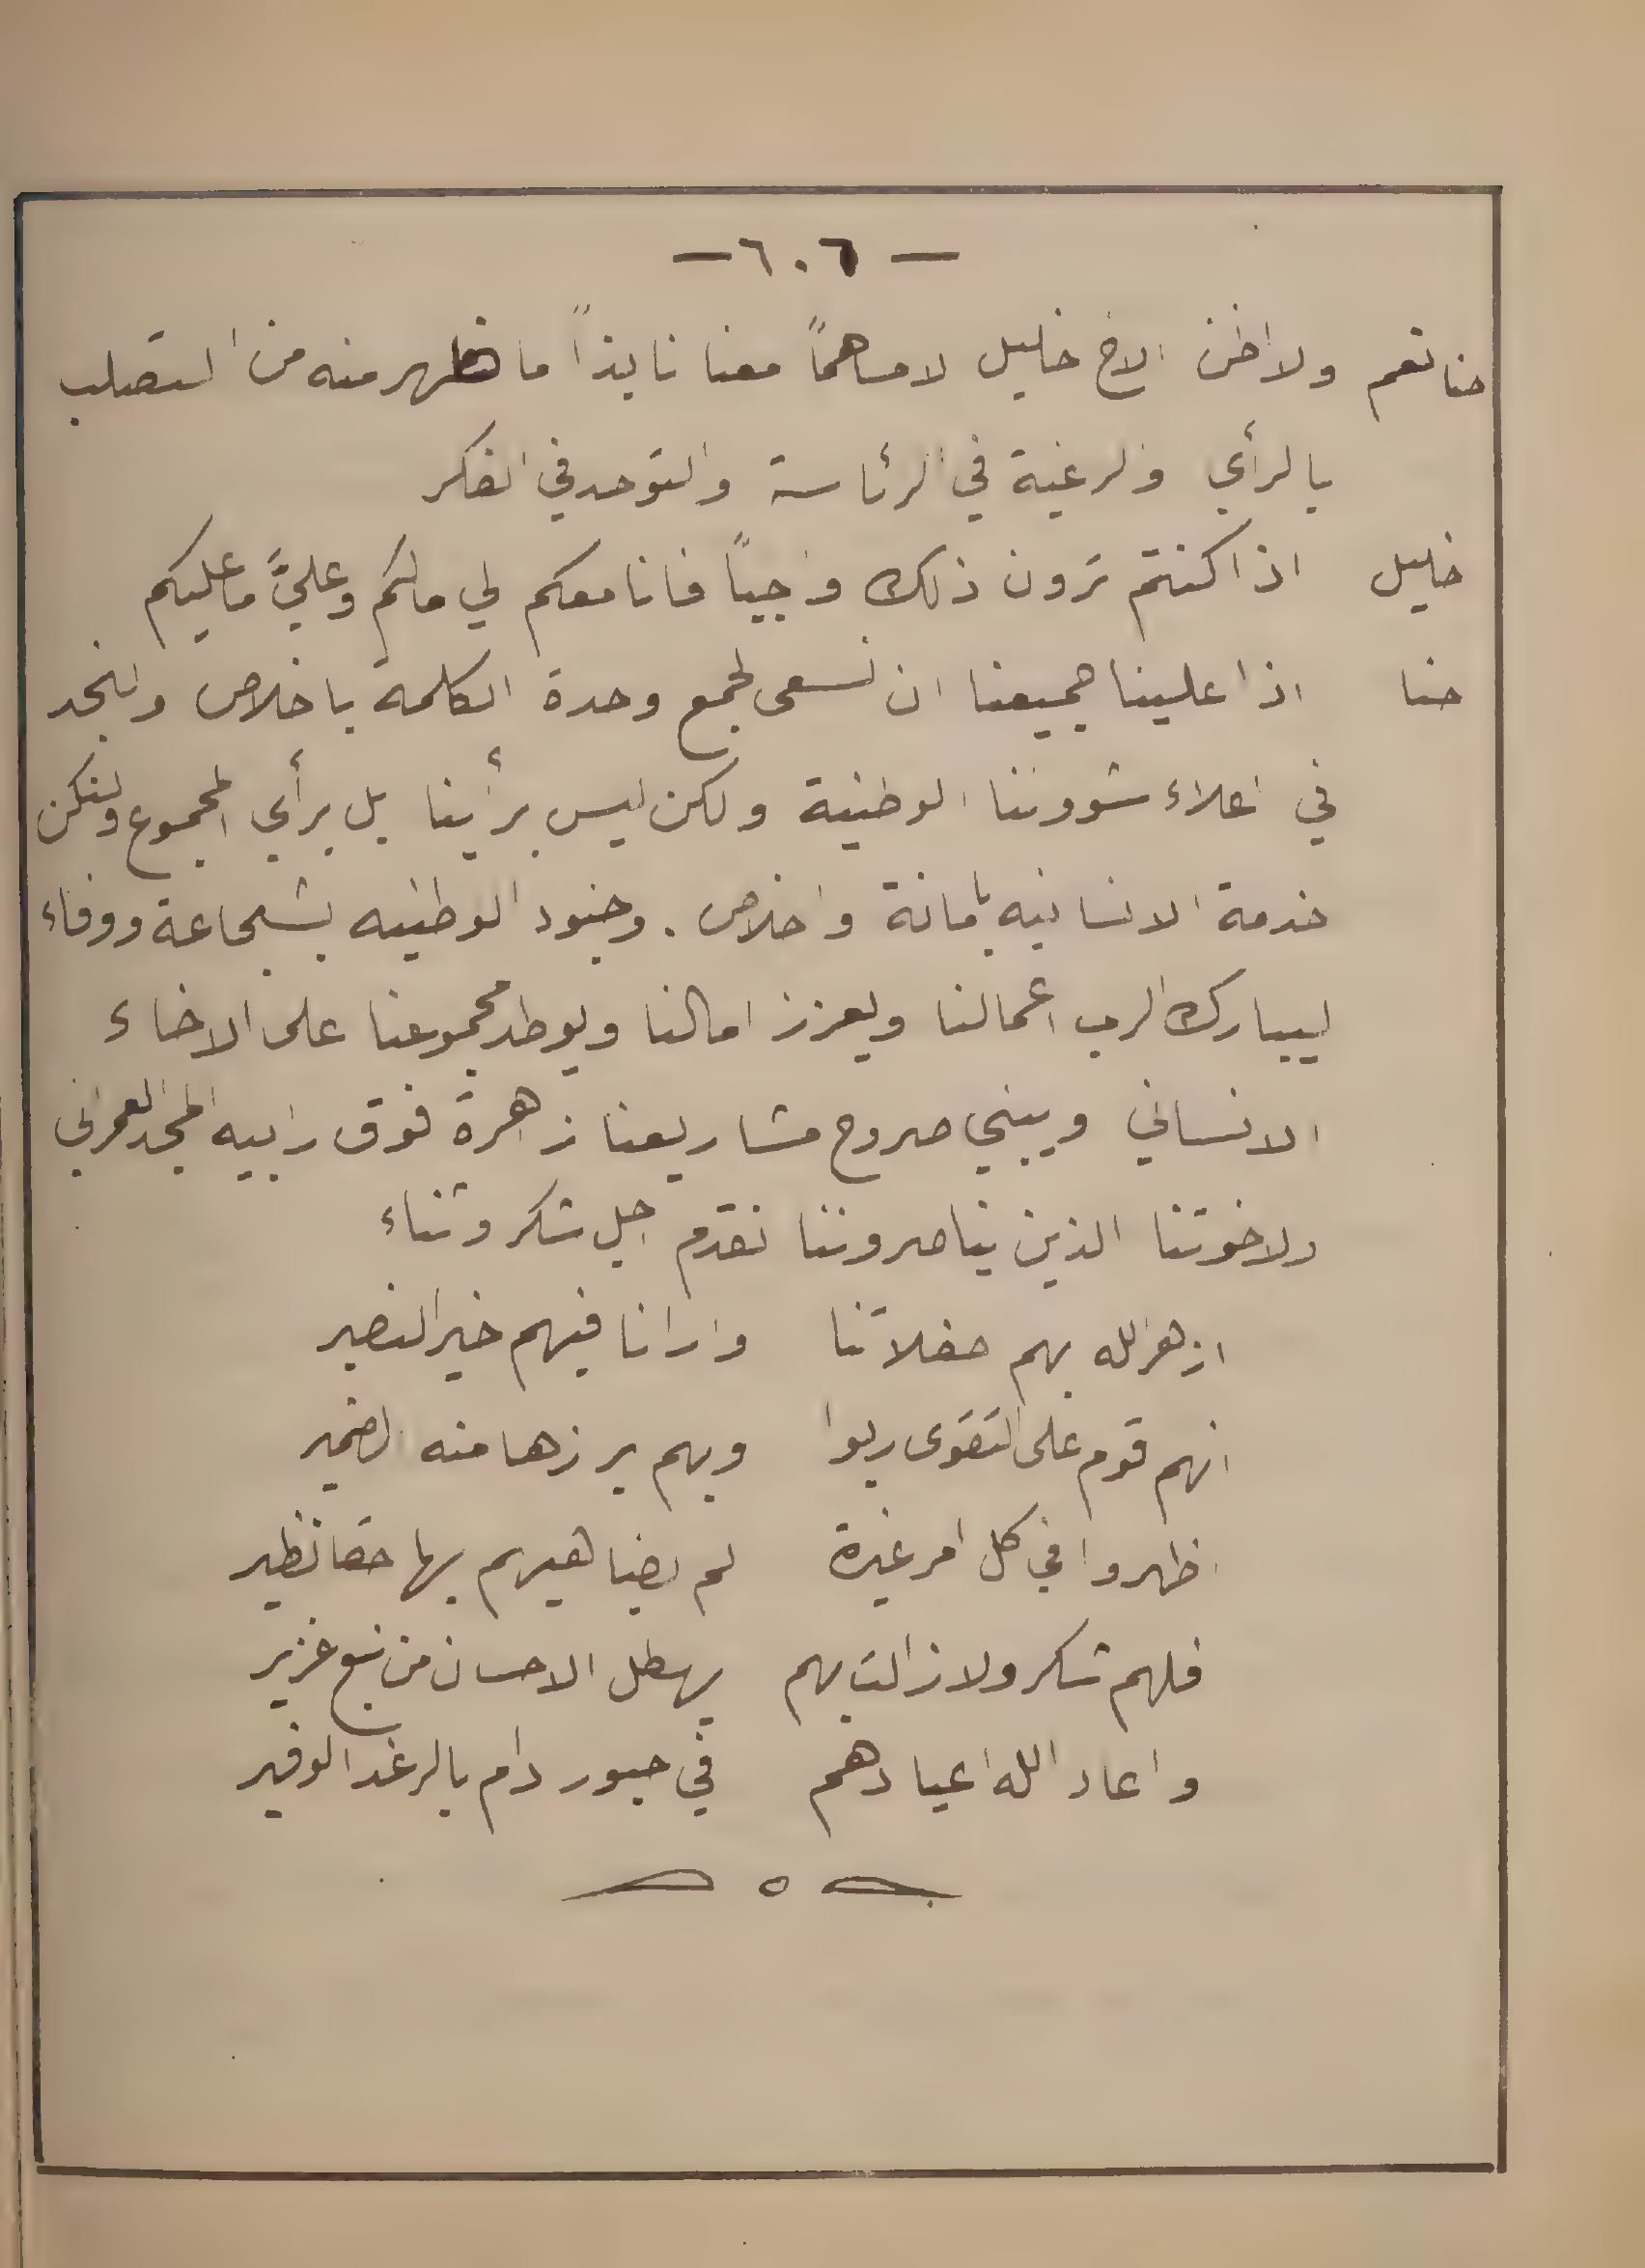 — ٦٠٦ —
حنا نعم ولا اظن الاخ خليل لا مساهماً معنا نابذاً ما ظهر منه من التصلب
بالرأي والرغبة في الرئاسة والتوحد في الفكر
خليل اذا كنتم ترون ذلك واجباً فانا معكم لي مالكم وعليَّ ما عليكم
حنا اذا علينا جميعنا ان نسعى لجمع وحدة الكلمة باخلاص ولنجد
في اعلاء شووننا الوطنية ولكن ليس برأينا بل برأي المجموع ولنكن
خدمة الانسانيه بامانة واخلاص . وجنود الوطنيه بشجاعة ووفاء
ليبارك الرب اعمالنا ويعزز امالنا ويوطد مجموعنا على الاخاء
الانساني ويبني صروح مشاريعنا زاهرة فوق رابيه المجد العمراني
ولاخوتنا الذين يناصروننا نقدم اجل شكر وثناء
ازهر الله بهم حفلاتنا وارانا فيهم خير النصير
انهم قوم على التقوى ربوا وبهم برزها منه الضمير
ظهروا في كل امر غيرة لم يضاهيرم بها حقا نظير
فلهم شكر ولا زالت بهم يهطل الاحسان من نبع غزير
واعاد الله اعيادهم في حبور دام بالرغد الوفير